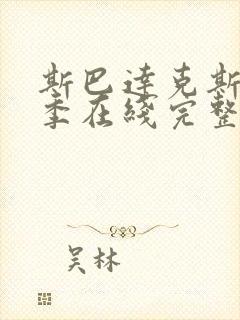 斯巴达克斯
季在线完整
吴林